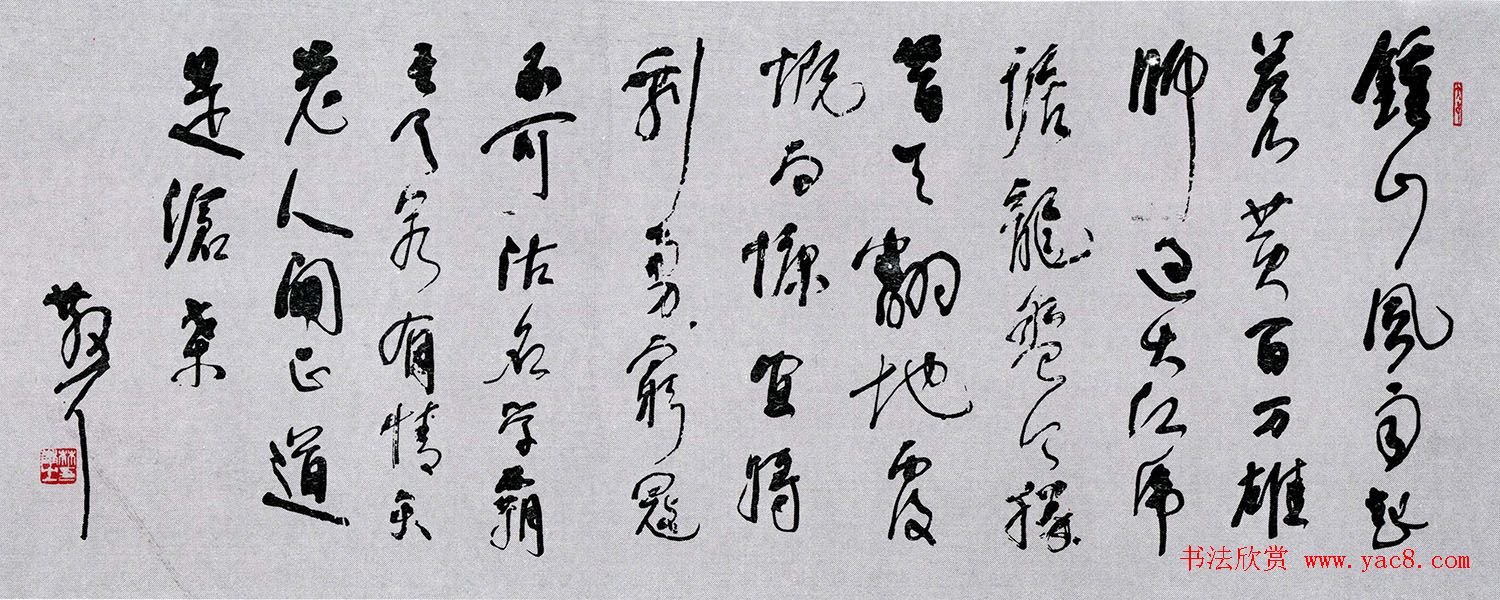 鍾山風雨起
蒼黃百万雄
師過大江虎
踞龍盤今勝
昔天翻地覆
慨而慷宜將
剩勇窮寇
不可沽名学霸
王天若有情天
老人間正道
是滄桑
散耳
书法欣赏 www.yac8.com